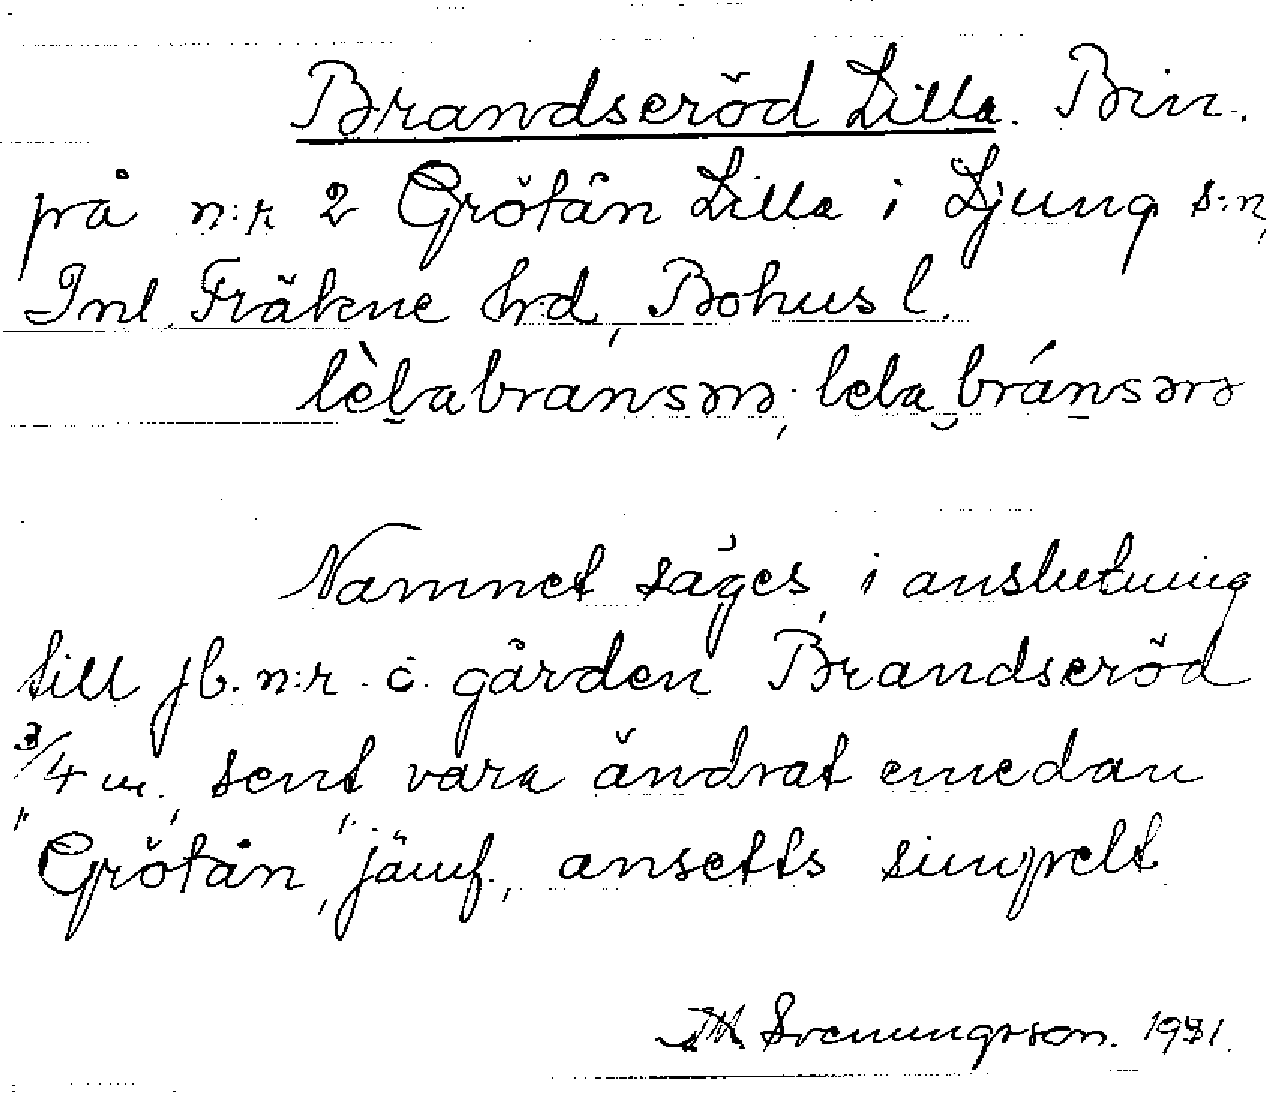 Brandseröd Lilla. Bin.
på n:r 2 Grötån Lilla i Ljung s:n,
Inl. Fräkne hrd, Bohusl.
lèlabransəro; lela bránsəro
Namnet säges, i anslutning
till jb. n:r. o. gården Brandseröd
3/4 m., sent vara ändrat emedan
"Grötån", jämf., ansetts simpelt
Svenungsson. 1931.